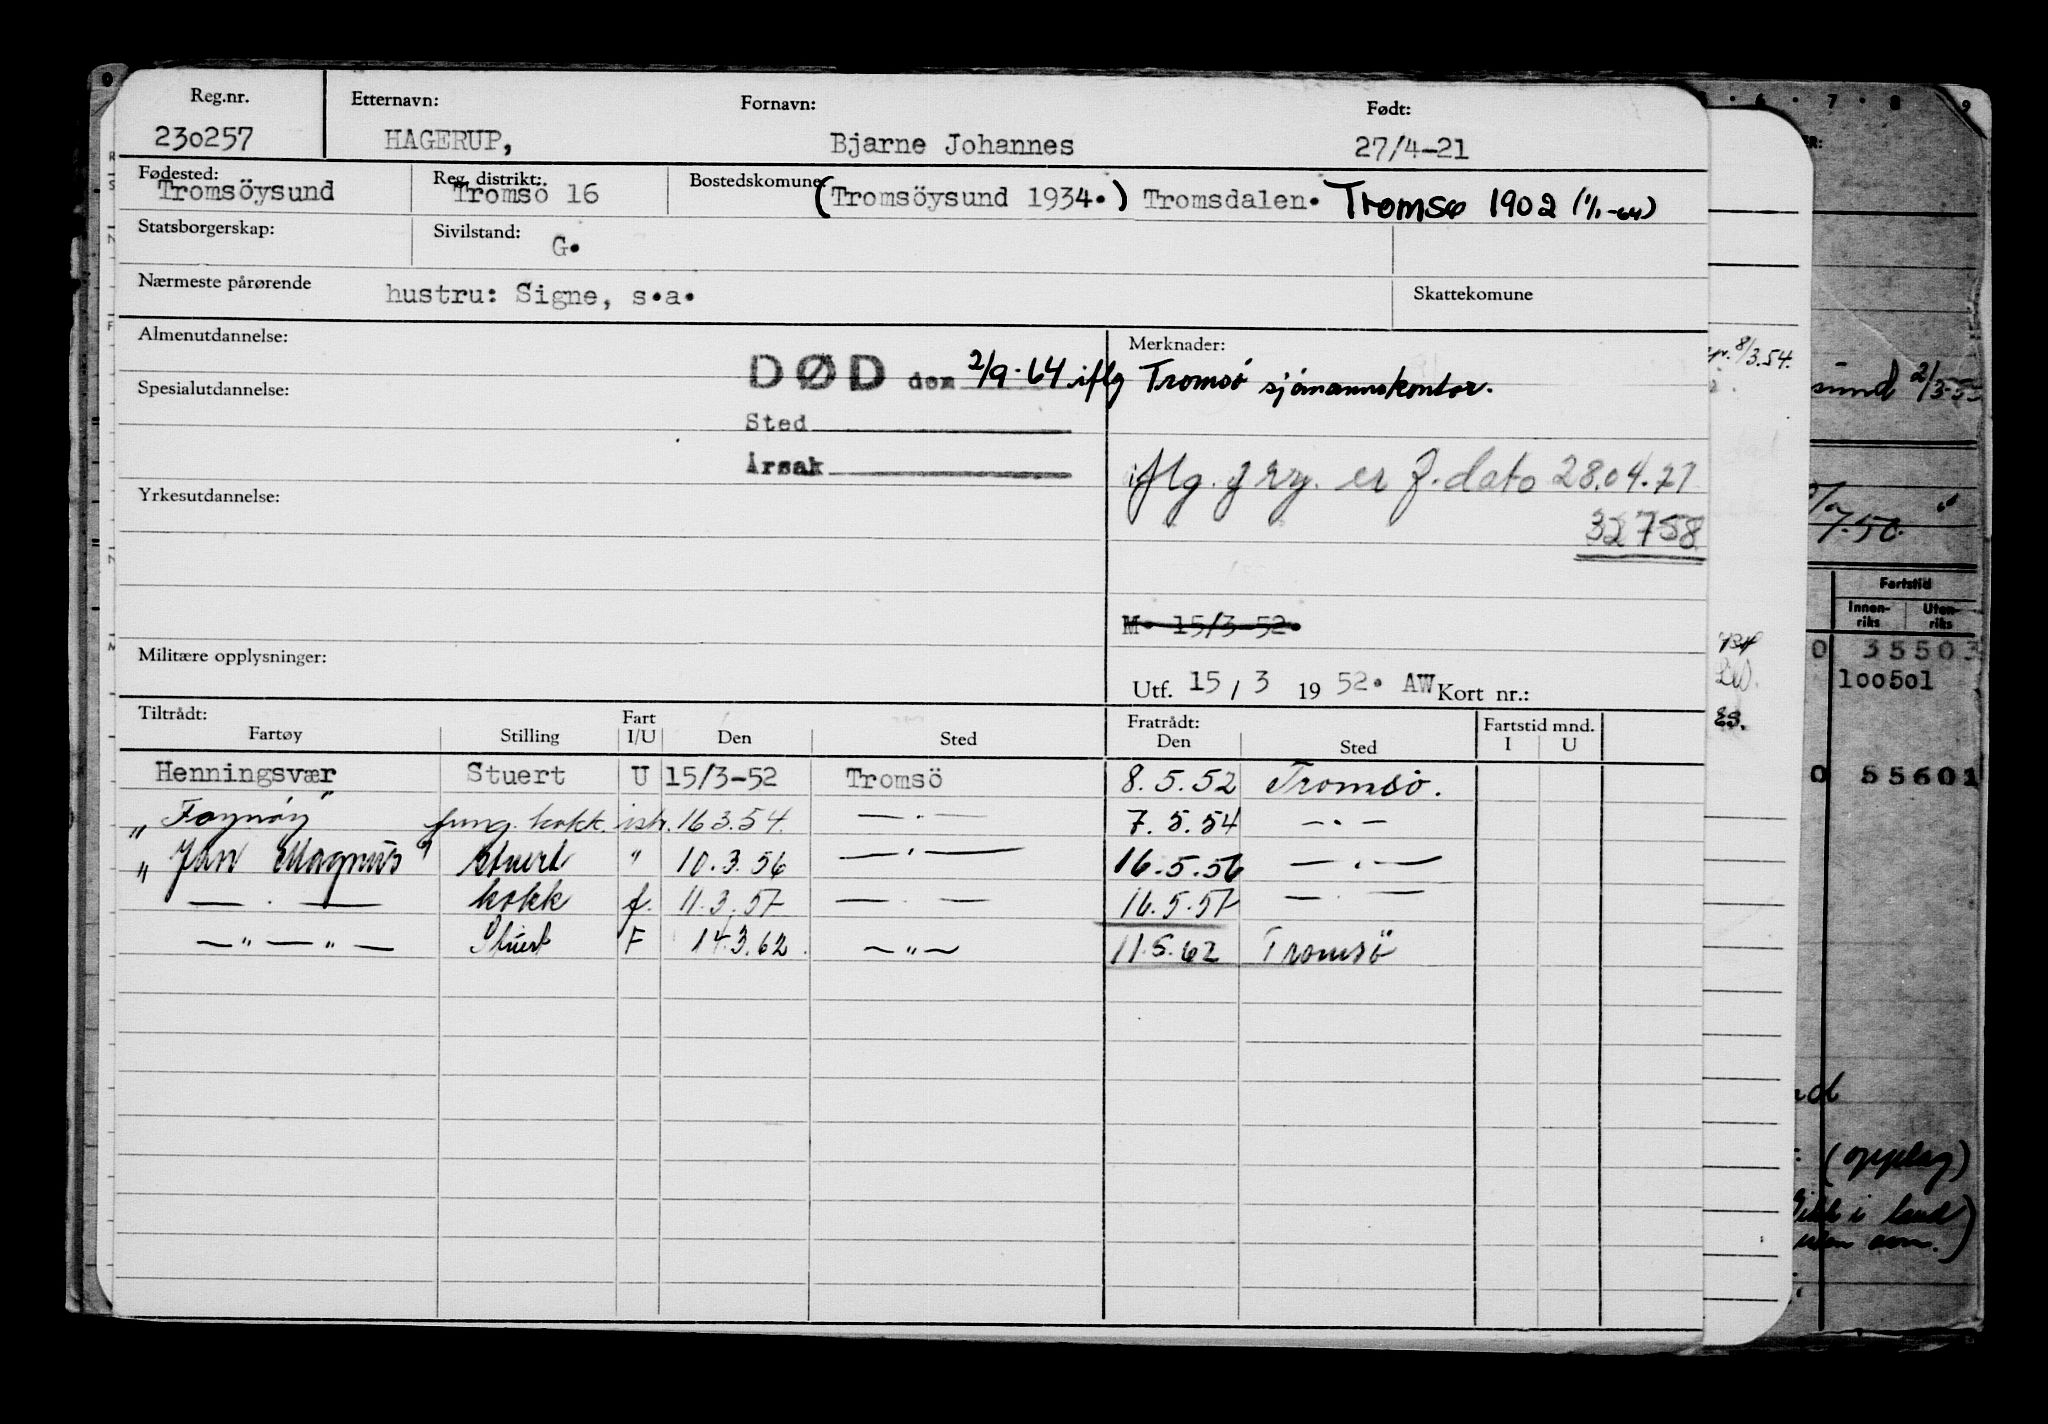 Reg.nr. Etternavn: Fornavn: Født:
230257 HAGERUP, Bjarne Johannes 27/4-21
Fødested: Reg. distrikt: Bostedskomune
Tromsöysund Tromsö 16 (Tromsöysund 1934.) Tromsdalen. Tromsø 1902 (1/1-64)
Statsborgerskap: Sivilstand: G.
Nærmeste pårørende hustru: Signe, s.a. Skattekomune
Almenutdannelse: Merknader:
DØD den 2/9-64 iflg Tromsö sjömannskontor.
Spesialutdannelse:
Sted
Årsak
iflg. frg. er f.dato 28.04.21
32758
Yrkesutdannelse:
M. 15/3-52.
Militære opplysninger:
Utf. 15 / 3 19 52. AW Kort nr.:
Tiltrådt: Fart Fratrådt: Fartstid mnd.
Fartøy Stilling I/U Den Sted Den Sted I U
Henningsvær Stuert U 15/3-52 Tromsö 8.5.52 Tromsö.
fung. kokk. ish. 16.3.54. — . — 7.5.54 — . —
" Jan Magnus " stuert " 10.3.56 — " — 16.5.56 — . —
— . — kokk f. 11.3.57 — . — 16.5.57 — . —
— " — " — Stuert F 14.3.62. — " — 11.5.62 Tromsö
8/3.54.
sund 2/3-53
7.50.
Fartstid
Innen-riks Uten-riks
0 35503
100501
0 55601
(opplag)
i land